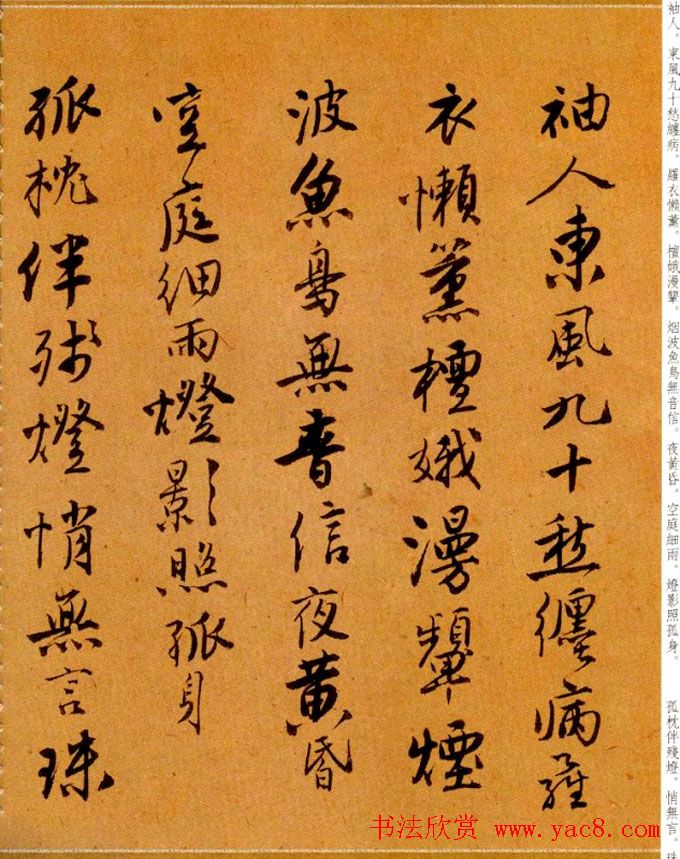 袖人東風九十愁纏病羅
衣懶薰檀娥漫顰煙
波魚鳥無音信夜黄昏
空庭細雨燈影照孤身
孤枕伴殘燈悄無言珠
袖人。東風九十愁纏病。羅衣懶薰。檀娥漫顰。烟波魚鳥無音信。夜黄昏。空庭細雨。燈影照孤身。 孤枕伴殘燈。悄無言。珠
书法欣赏 www.yac8.com